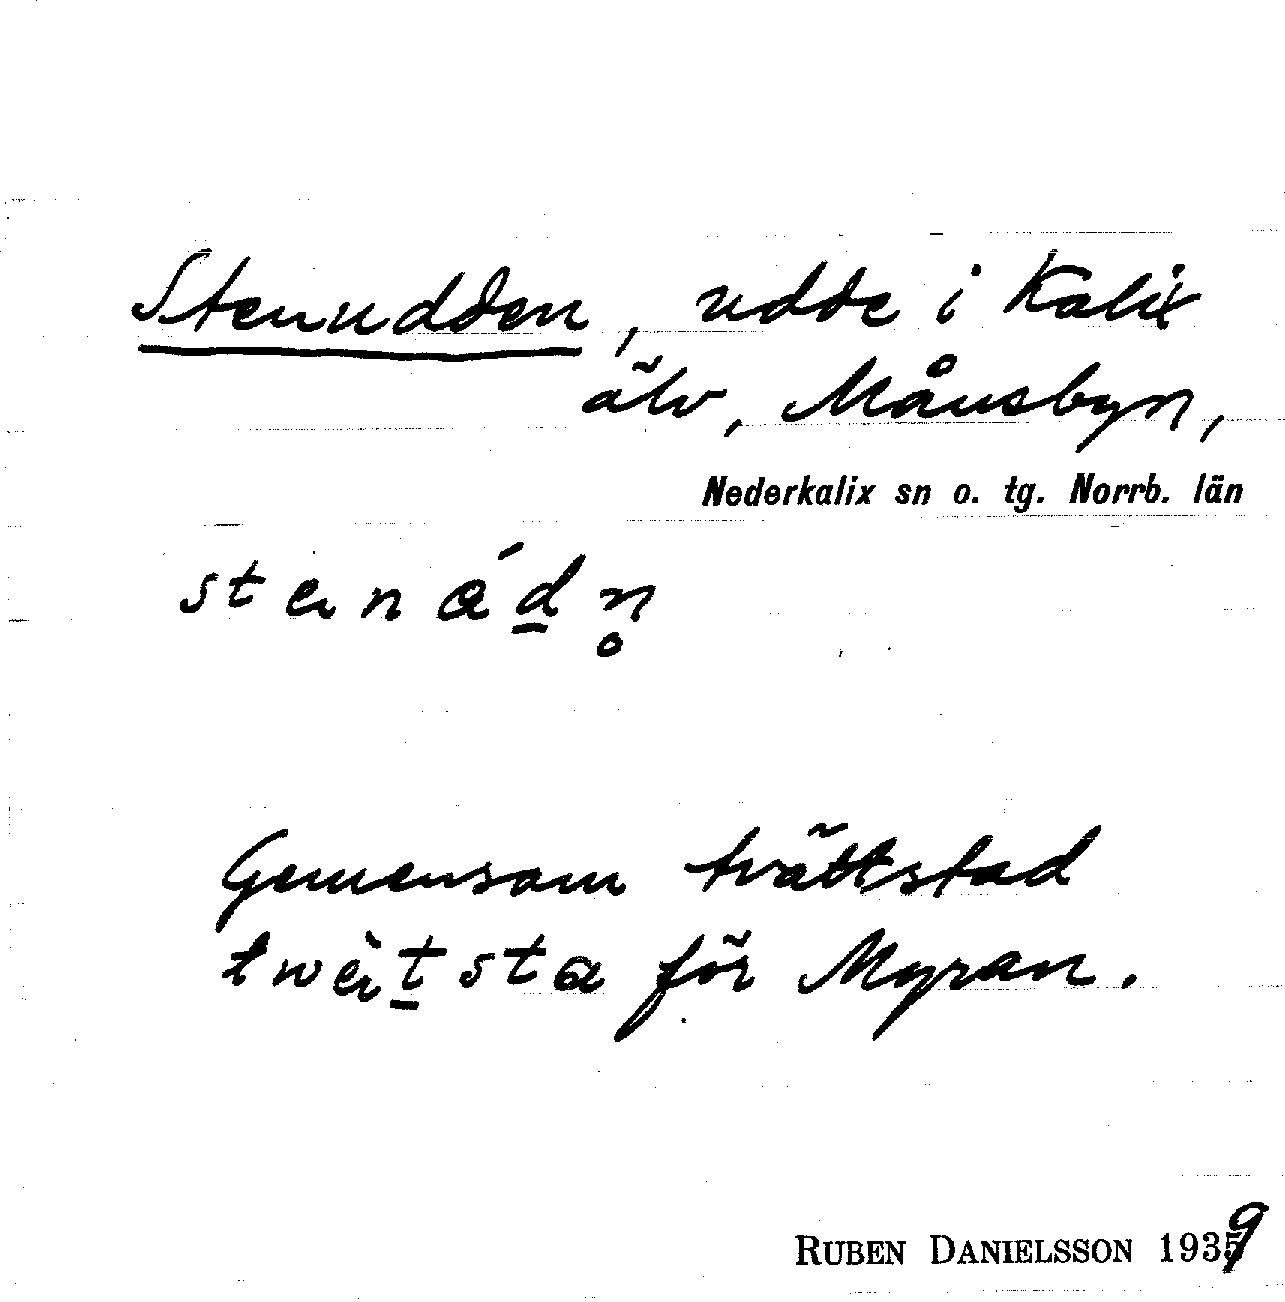 Stenudden, udde i Kalix
älv, Månsbyn,
Nederkalix sn o. tg. Norrb. län
Gemensam tvättstad
för Myran.
RUBEN DANIELSSON 1939